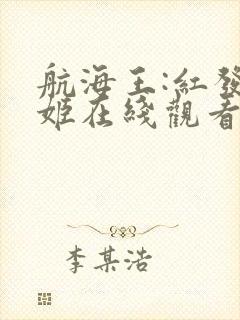 航海王:紅發
姬在綫觀看
李某浩